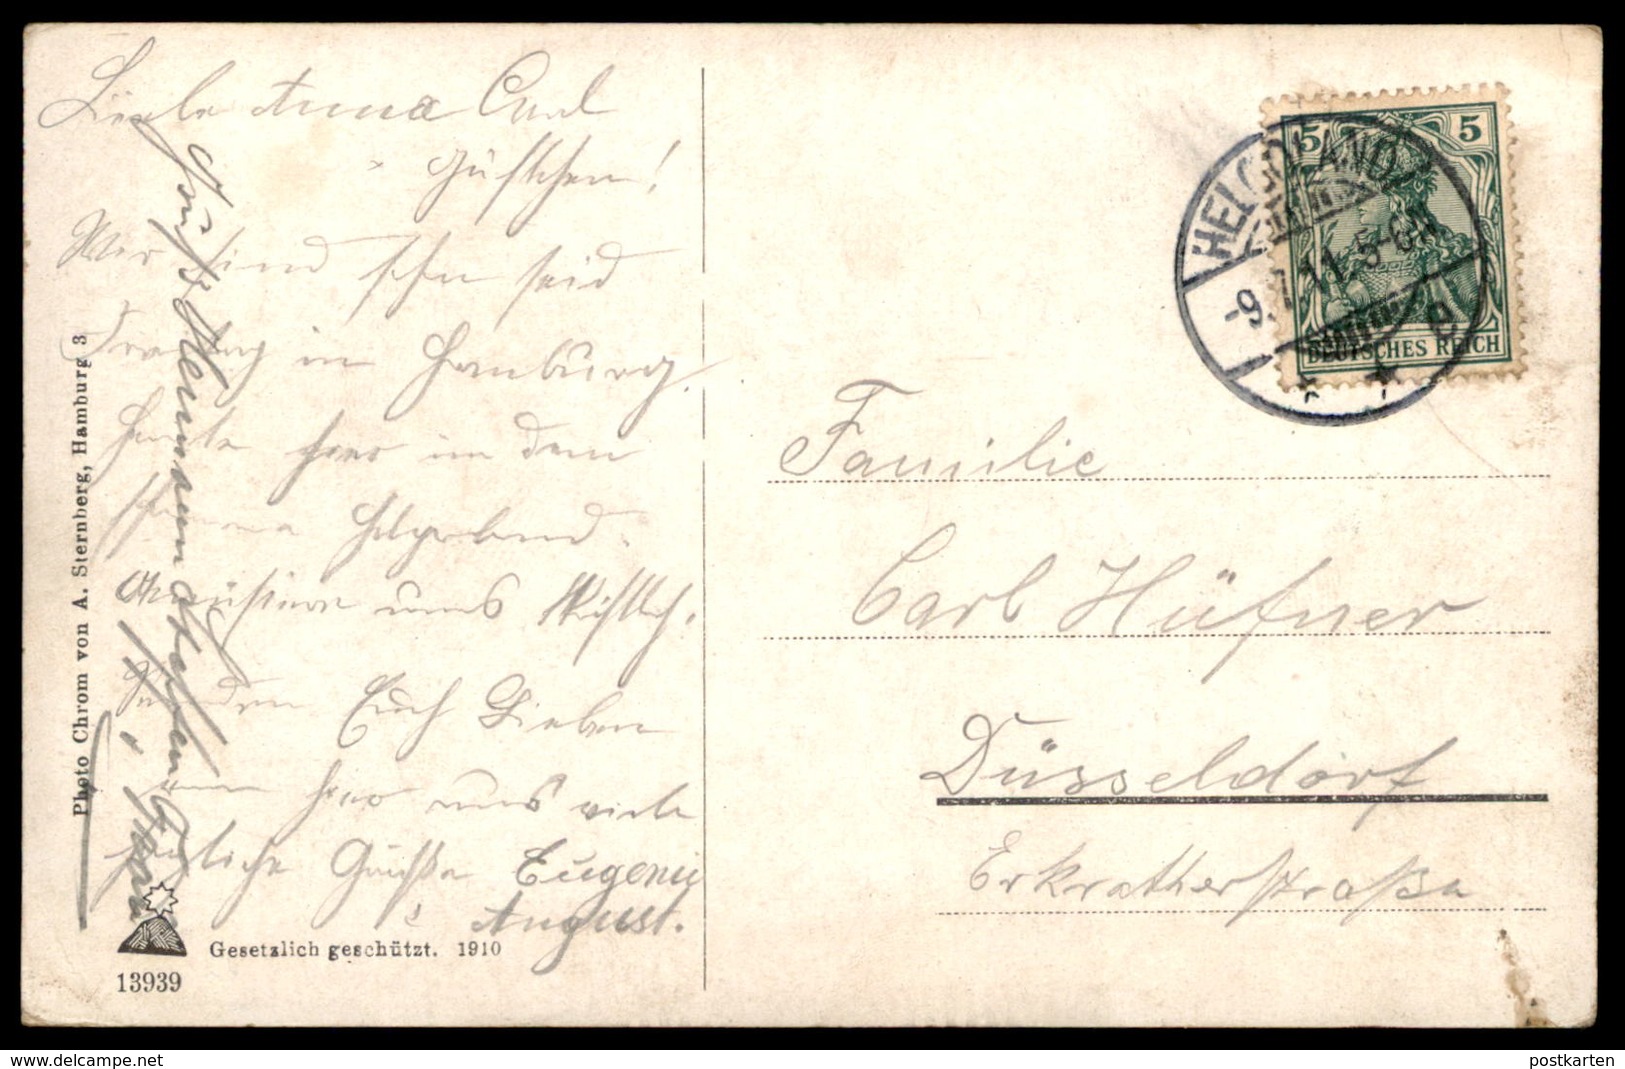 Liebe Anna Carl
Güstchen!
Wir sind schon seid
Freitag in Hamburg.
Heute hier in dem
schönen Helgoland.
Amüsieren uns köstlich.
Senden Euch Lieben
von hier uns viele
herzliche Grüße Eugenie
August.
Gruß Hermann
Photo Chrom von A. Sternberg, Hamburg 3
Gesetzlich geschützt. 1910
13939
5 5
DEUTSCHES REICH
HELGOLAND
-9. 11. 5-6N
Familie
Carl Hüfner
Düsseldorf
Erkratherstraße
delcampe.net
postkarten